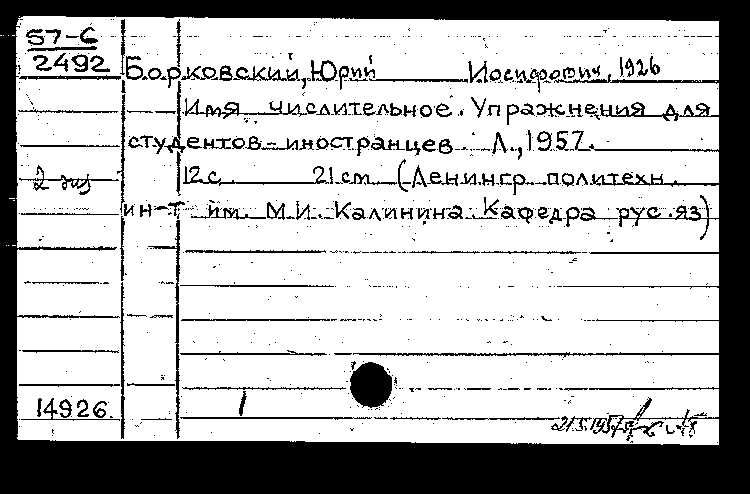 57-6
2492
Борковский, Юрий Иосифович, 1926
Имя числительное. Упражнения для
студентов-иностранцев. Л., 1957.
2 экз
12 с. 21 см (Ленингр политехн.
ин-т им. М.И. Калинина. Кафедра рус. яз)
14926
1